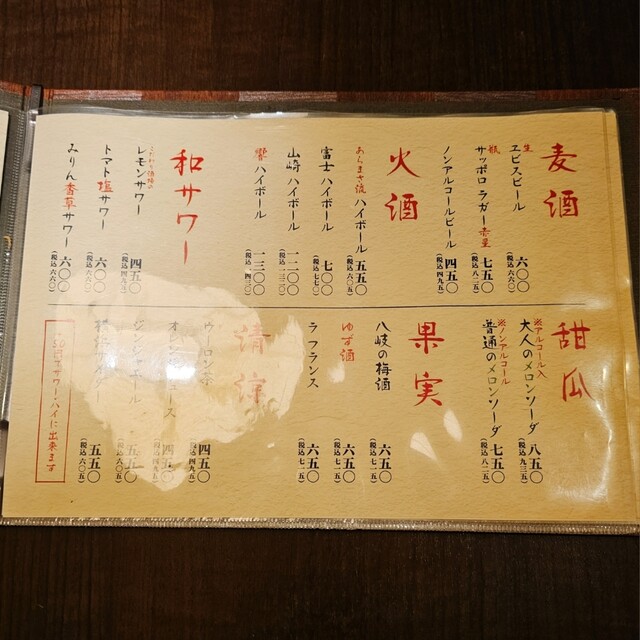 麦酒
生
ヱビスビール 六〇〇
（税込 六六〇）
瓶
サッポロ ラガー 赤星 七五〇
（税込 八二五）
ノンアルコールビール 四五〇
（税込 四九五）
火酒
あらまさ流 ハイボール 五五〇
（税込 六〇五）
富士 ハイボール 七〇〇
（税込 七七〇）
山崎 ハイボール 一二〇〇
響 ハイボール 一三〇〇
（税込 一四三〇）
和サワー
こだわり酒場の
レモンサワー 四五〇
（税込 四九五）
トマト塩サワー 六〇〇
（税込 六六〇）
みりん香草サワー 六〇〇
（税込 六六〇）
甜瓜
※アルコール入
大人のメロンソーダ 八五〇
（税込 九三五）
※ノンアルコール
普通のメロンソーダ 七五〇
（税込 八二五）
果実
八岐の梅酒 六五〇
（税込 七一五）
ゆず酒 六五〇
（税込 七一五）
ラ フランス 六五〇
（税込 七一五）
清涼
ウーロン茶 四五〇
（税込 四九五）
オレンジジュース 四五〇
（税込 四九五）
ジンジャエール 五五〇
（税込 六〇五）
五五〇
（税込 六〇五）
50円でサワー・ハイに出来ます